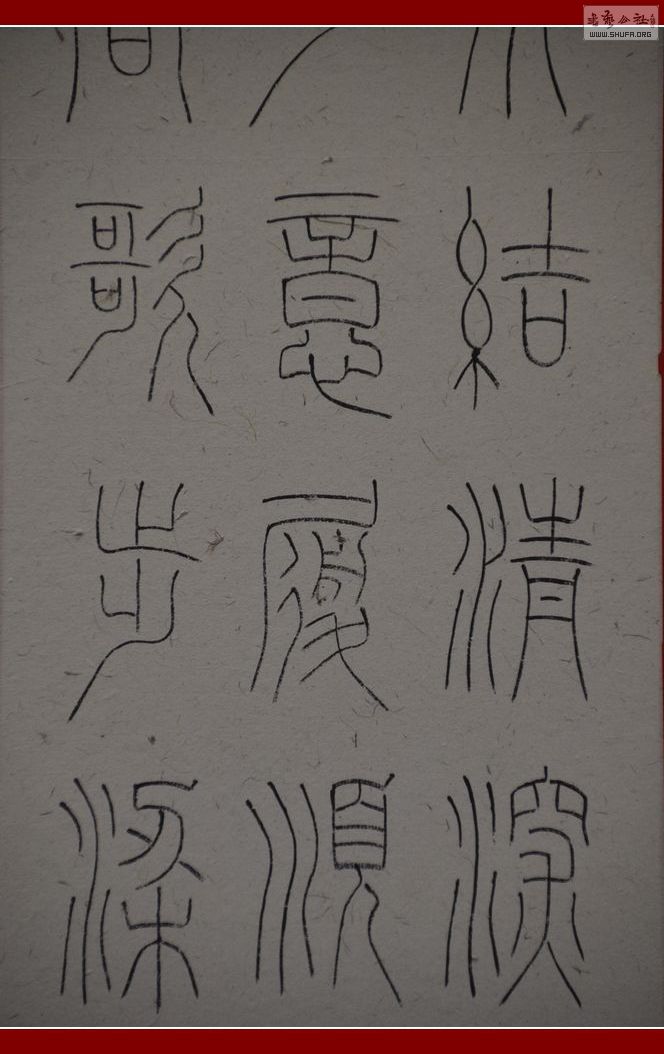 結清深
意履須
歌步
書藝公社
WWW.SHUFA.ORG